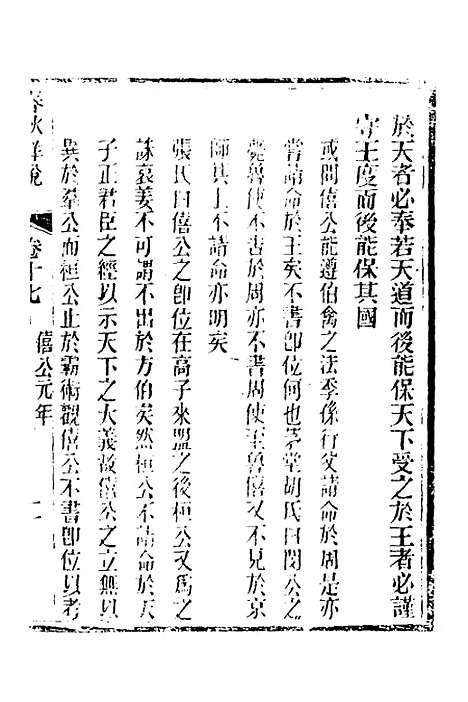 於天者必奉若天道而後能保天下受之於王者必謹
守王度而後能保其國
或問僖公能遵伯禽之法季孫行父請命於周是亦
嘗請命於王矣不書即位何也茅堂胡氏曰閔公之
薨魯使不告於周亦不書周使至魯僖又不見於京
師其上不請命亦明矣
張氏曰僖公之即位在高子來盟之後桓公又爲之
誅哀姜不可謂不出於方伯矣然桓公不請命於天
子正君臣之經以示天下之大義故僖公之立無以
異於羣公而桓公止於霸術觀僖公不書即位以考
春秋詳說
卷十七
僖公元年